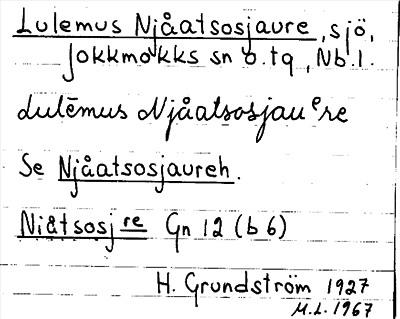 Lulemus Njåatsosjaure, sjö,
Jokkmokks sn o. tq, Nb. l.
dulēmus Njåatsosjauᵉre
Se Njåatsosjaureh.
Niåtsosj re Gn 12 (b 6)
H. Grundström 1927
M.L. 1967